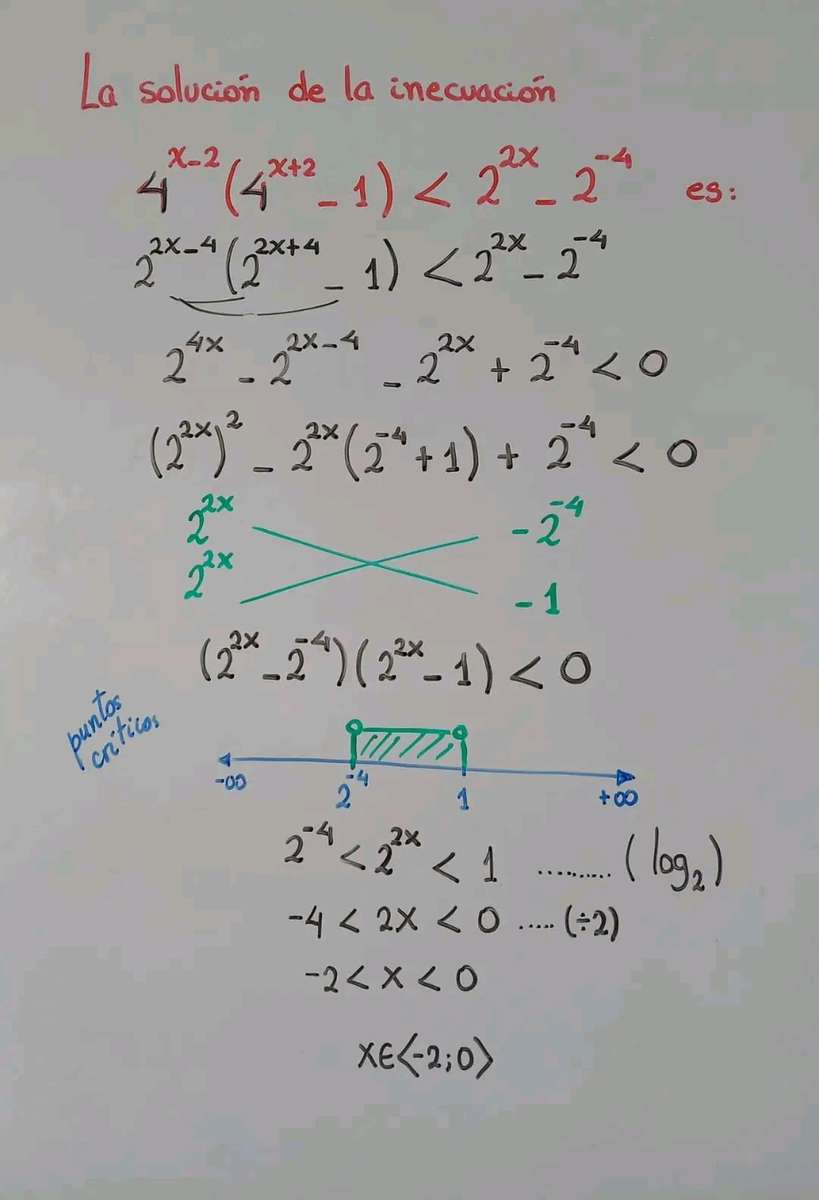 La solución de la inecuación
4^{x-2}(4^{x+2} - 1) < 2^{2x} - 2^{-4} es:
2^{2x-4}(2^{2x+4} - 1) < 2^{2x} - 2^{-4}
2^{4x} - 2^{2x-4} - 2^{2x} + 2^{-4} < 0
(2^{2x})^2 - 2^{2x}(2^{-4} + 1) + 2^{-4} < 0
2^{2x} -2^{-4}
2^{2x} -1
(2^{2x} - 2^{-4})(2^{2x} - 1) < 0
puntos
críticos
-∞ 2^{-4} 1 +∞
2^{-4} < 2^{2x} < 1 ......... (log_2)
-4 < 2x < 0 ..... (÷2)
-2 < x < 0
x∈⟨-2;0⟩